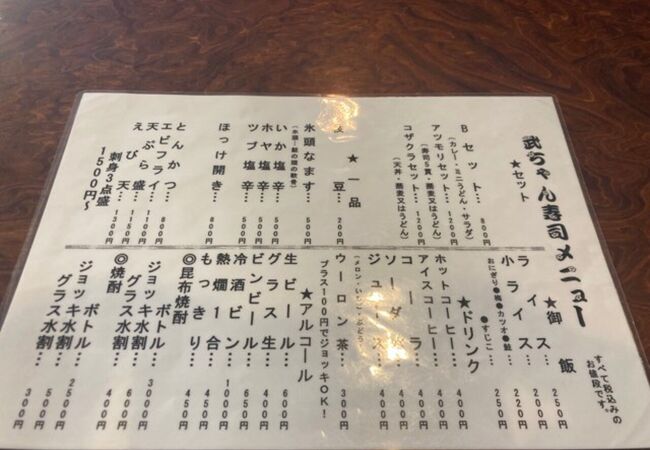 武ちゃん寿司メニュー
すべて税込みの
お値段です。
★セット
Bセット… 800円
(カレー・ミニうどん・サラダ)
アツモリセット… 1200円
(寿司5貫・蕎麦又はうどん)
コザクラセット… 1200円
(天丼・蕎麦又はうどん)
★一品
豆… 200円
氷頭なます… 500円
いか塩辛… 500円
ホヤ塩辛… 500円
ツブ塩辛… 500円
ほっけ開き… 800円
とんかつ… 800円
エビフライ… 1100円
天ぷら盛…
えび天… 1300円
刺身3点盛
1500円～
★御飯
ライス… 250円
小ライス… 200円
おにぎり●梅●カツオ●鮭 220円
●すじこ… 250円
★ドリンク
ホットコーヒー… 400円
アイスコーヒー… 400円
コーラ… 400円
ソーダ水… 400円
ジュース… 400円
(メロン・いちご・ぶどう)
ウーロン茶… 300円
プラス100円でジョッキOK！
★アルコール
生ビール… 600円
グラス生… 400円
ビンビール… 650円
冷酒ビン… 1000円
熱燗1合… 450円
もっきり… 450円
◎昆布焼酎
ボトル… 3000円
ジョッキ水割… 500円
グラス水割… 400円
◎焼酎
ボトル… 2500円
ジョッキ水割… 500円
グラス水割… 300円